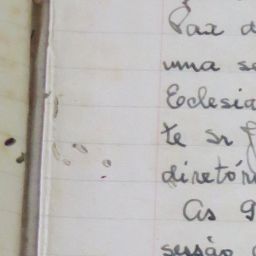 Pax d
uma se
Eclesia
te sr f
diretór
As 9
sessão